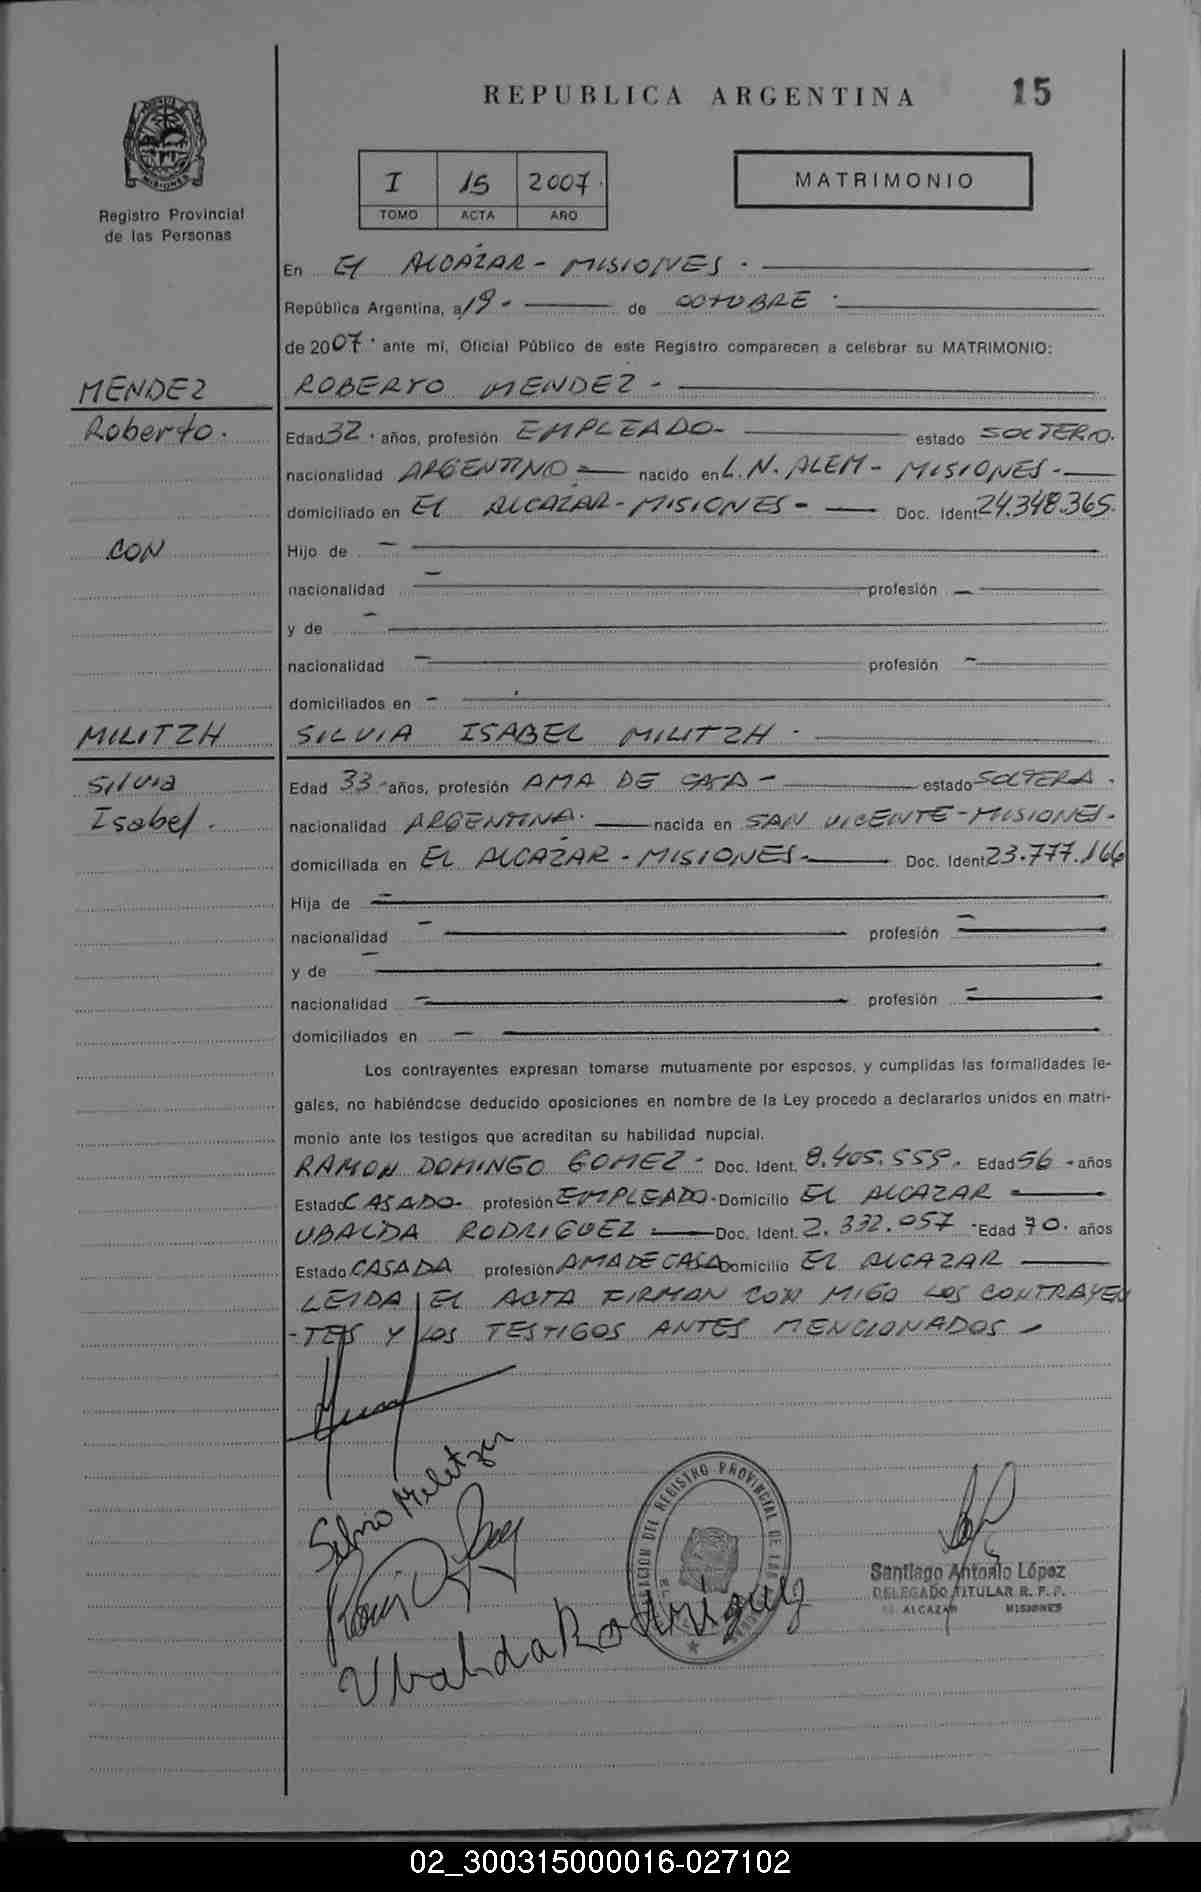 REPUBLICA ARGENTINA 15
MISIONES
Registro Provincial
de las Personas
I 15 2007.
TOMO ACTA AÑO
MATRIMONIO
En El ALCAZAR - MISIONES.
República Argentina, a 19. de OCTUBRE.
de 2007. ante mí, Oficial Público de este Registro comparecen a celebrar su MATRIMONIO:
MENDEZ
ROBERTO MENDEZ -
Roberto.
Edad 32. años, profesión EMPLEADO- estado SOLTERO.
nacionalidad ARGENTINO - nacido en L.N. ALEM - MISIONES -
domiciliado en El ALCAZAR - MISIONES - Doc. Ident. 24.348.365.
CON
Hijo de -
nacionalidad - profesión -
y de -
nacionalidad - profesión -
domiciliados en -
MILITZH
SILVIA ISABEL MILITZH.
Silvia
Isabel.
Edad 33 - años, profesión AMA DE CASA - estado SOLTERA.
nacionalidad ARGENTINA. nacida en SAN VICENTE - MISIONES.
domiciliada en EL ALCAZAR - MISIONES - Doc. Ident. 23.777.166
Hija de -
nacionalidad - profesión -
y de -
nacionalidad - profesión -
domiciliados en -
Los contrayentes expresan tomarse mutuamente por esposos, y cumplidas las formalidades le-
gales, no habiéndose deducido oposiciones en nombre de la Ley procedo a declararlos unidos en matri-
monio ante los testigos que acreditan su habilidad nupcial.
RAMON DOMINGO GOMEZ - Doc. Ident. 8.405.559. Edad 56 - años
Estado CASADO - profesión EMPLEADO - Domicilio El ALCAZAR -
UBALDA RODRIGUEZ - Doc. Ident. 2.332.057 - Edad 70. años
Estado CASADA profesión AMA DE CASA Domicilio El ALCAZAR
LEIDA EL ACTA FIRMAN CON MIGO LOS CONTRAYEN
-TES Y LOS TESTIGOS ANTES MENCIONADOS -
Silvia Militzer
Ubalda Rodriguez
DEL REGISTRO PROVINCIAL DE LAS
Santiago Antonio López
DELEGADO TITULAR R. P. P.
EL ALCAZAR MISIONES
02_300315000016-027102